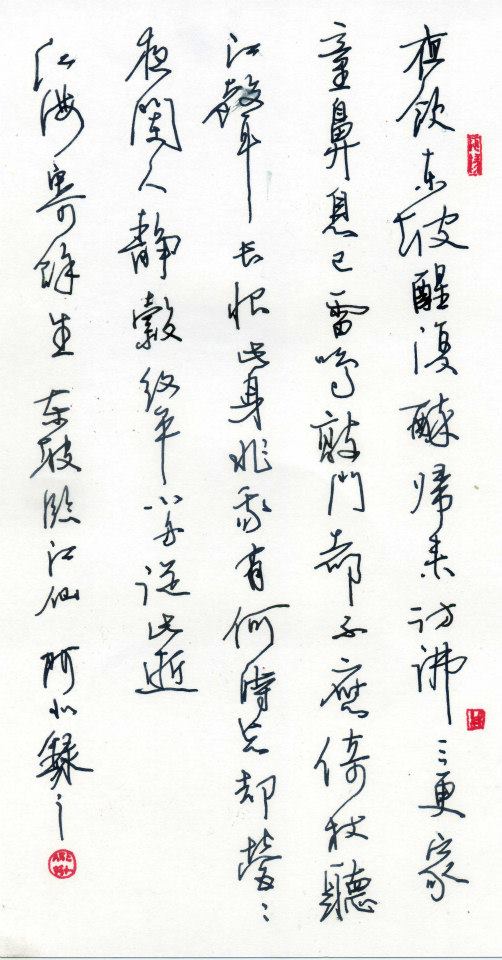 夜飲東坡醒復醉歸來訪彿三更家
童鼻息已雷鳴敲門都不應倚杖聽
江聲長恨此身非我有何時忘却營〻
夜闌人靜縠紋平小舟從此逝
江海寄餘生東坡臨江仙阿小錄之